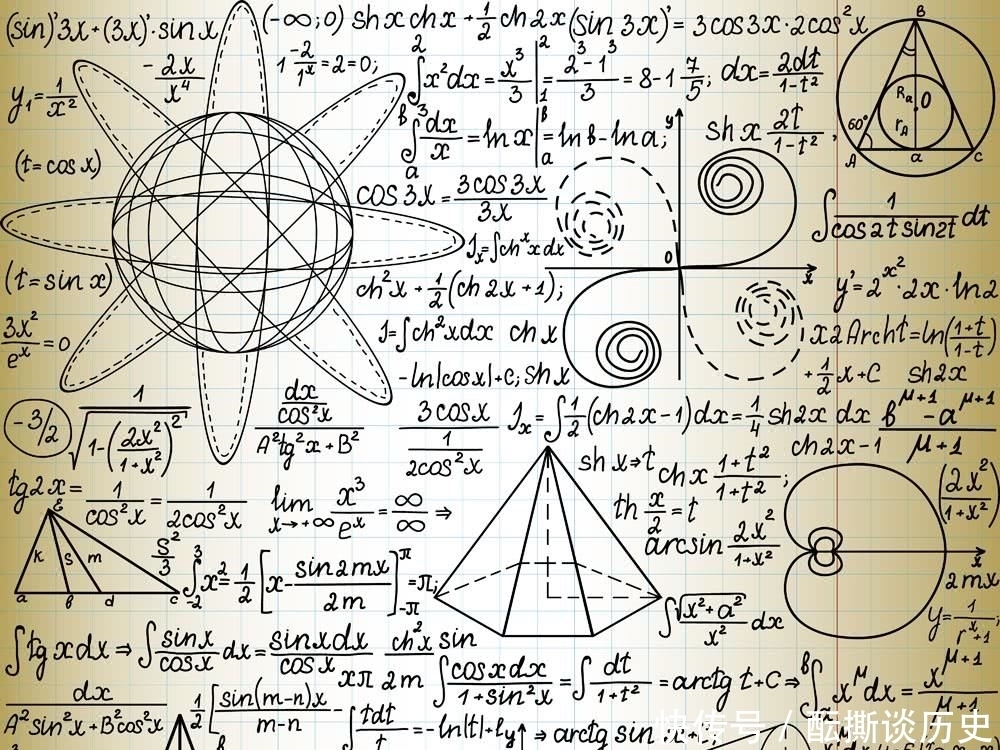 (sin)'3x+(3x)'·sin x
(-∞;0) sh x ch x + 1/2 ch 2x (sin 3x)' = 3 cos 3x · 2 cos²x
- 2x/x⁴
1 -2/1ˣ = 2 = 0;
∫₁² x²dx = x³/3 |₁² = 2³-1³/3 = 8-1 7/5; dx = 2dt/1-t²
y₁ = 1/x²
∫ₐᵇ³ dx/x = ln x |ₐᵇ = ln b - ln a;
y
sh x 2t/1-t²,
B
Rₐ O
rₐ
60°
A a C
(t = cos x)
cos 3x = 3 cos 3x/3x
∫ 1/cos 2t sin 2t dt
Iₓ = ∫chˣx dx
0
x
(t = sin x)
ch²x + 1/2 (ch 2x + 1);
y' = 2ˣ² · 2x · ln 2
3x²/eˣ = 0
I = ∫ch²x dx ch x
x 2 Arch t = ln(1+t/1-t)
-ln|cos x| + c; sh x
+ 1/2 x + C sh 2x
-3/2
1/√1-(2x²/1+x²)²
dx/cos²x
A²tg²x + B²
3 cos x
1/2cos²x
Iₓ = ∫ 1/2 (ch 2x - 1) dx = 1/4 sh 2x dx
b^μ+1 - a^μ+1/μ+1
ch 2x - 1
sh x ⇒ t
ch x 1+t²/1+t²;
(2x²/1+x²)
tg 2x = 1/cos²x = 1/2cos²x
lim x→+∞ x³/eˣ = ∞/∞ ⇒
th x/2 = t
arcsin 2x²/1+x²
E
K S m
a b d c
S²/3
∫₋₂³ x² = 1/2 [x - sin 2mx/2m]₋π^π = π;
x
2mx
∫ √x²+a²/x² dx
∫tg x dx ⇒ ∫ sin x/cos x dx = sin x dx/cos x
ch²x/2m sin
xπ
∫ cos x dx/1+sin²x = ∫ dt/1+t² = arctg t + C ⇒ ∫ᵇ x^μ dx = x^μ+1/μ+1
dx/A²sin²x + B²cos²x
1/2 [sin(m-n)x/m-n -
∫ tdt/t = -ln|t| +
y
⇒ arctg sin x +
快传号 / 酝撕谈历史